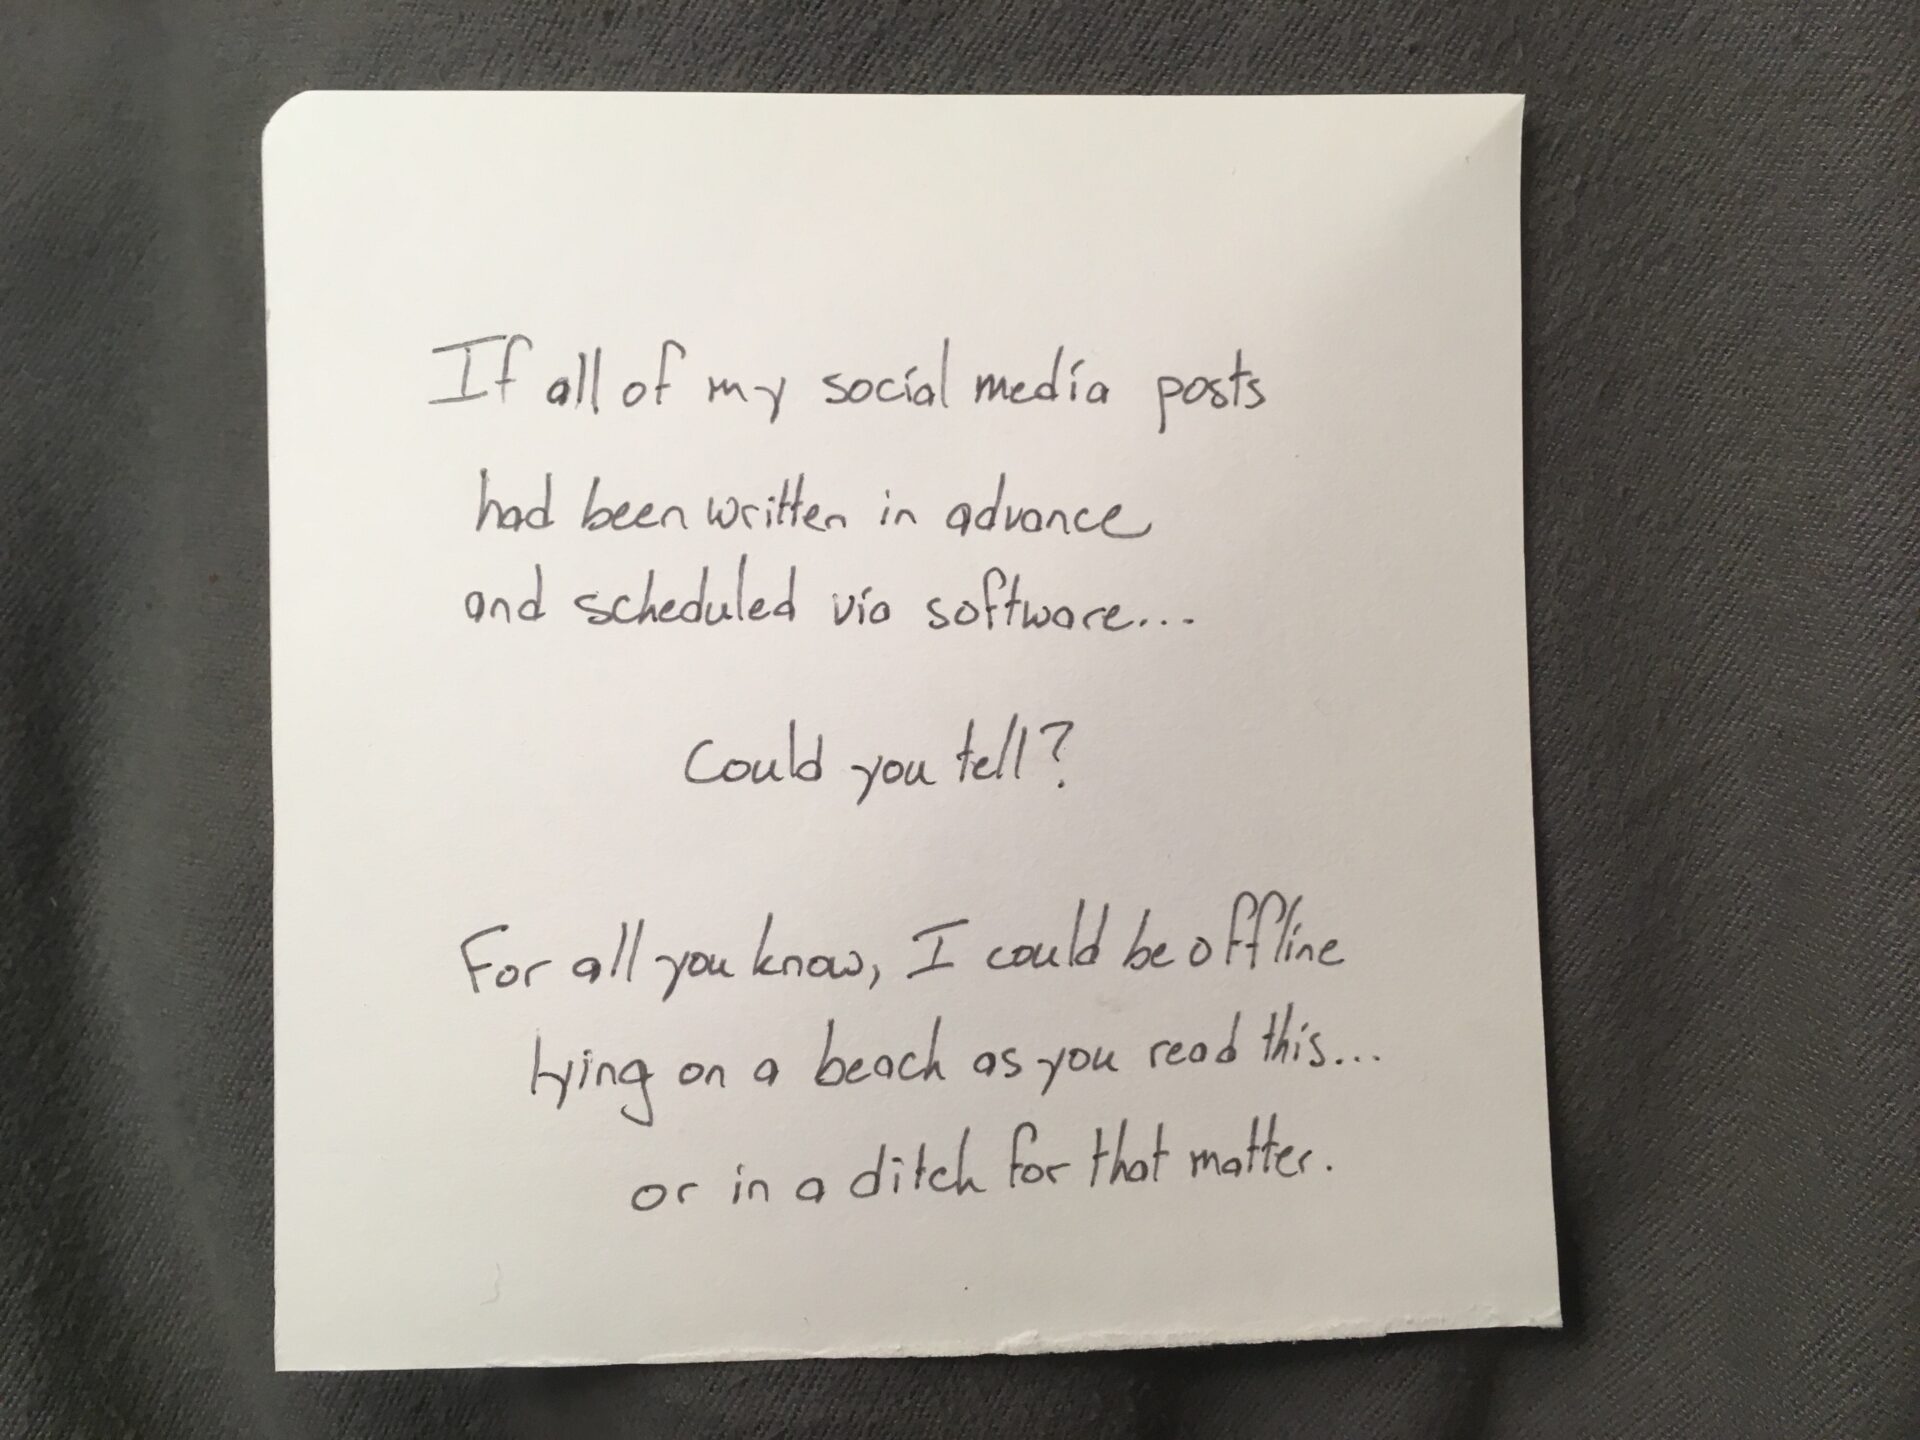 If all of my social media posts
had been written in advance
and scheduled via software...
Could you tell?
For all you know, I could be offline
lying on a beach as you read this...
or in a ditch for that matter.